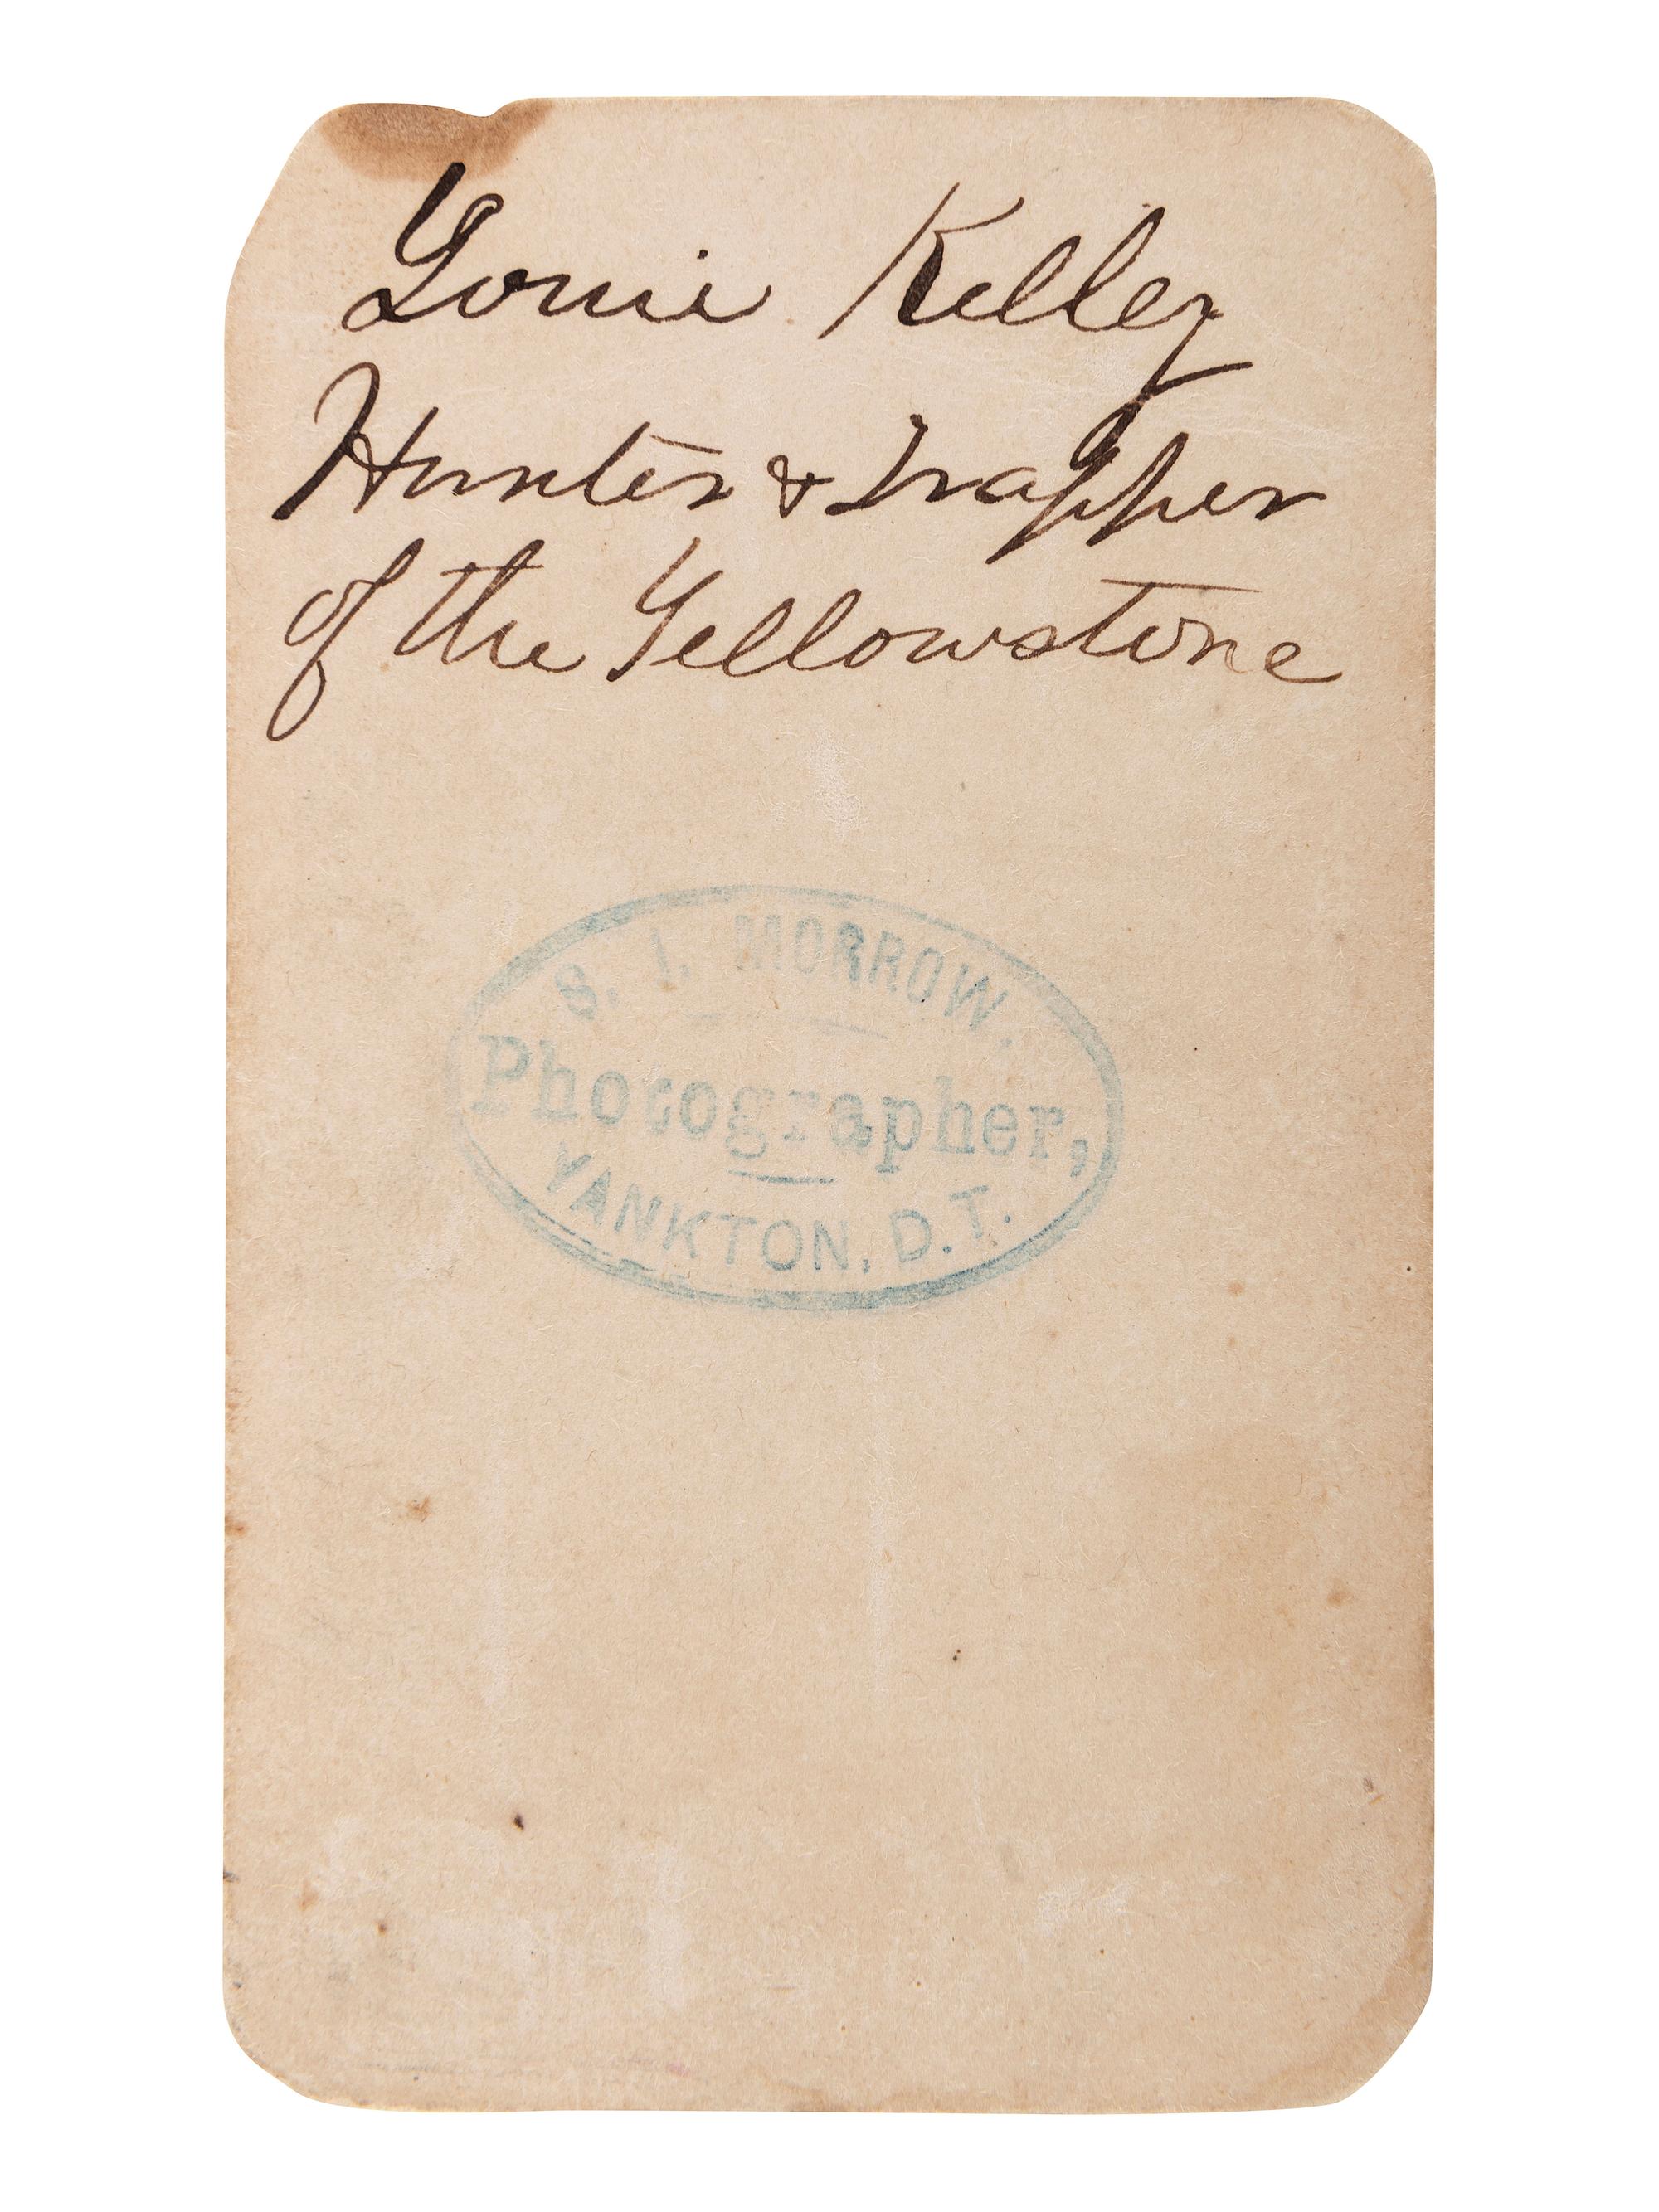 Louie Kelley
Hunter & Trapper
of the Yellowstone
S. J. MORROW,
Photographer,
YANKTON, D.T.